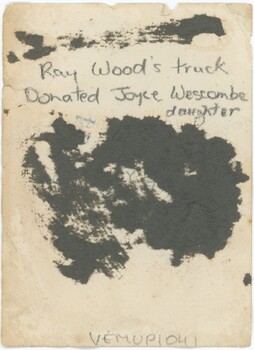 Ray Wood's truck
Donated Joyce Wescombe
daughter
VEMUP1041